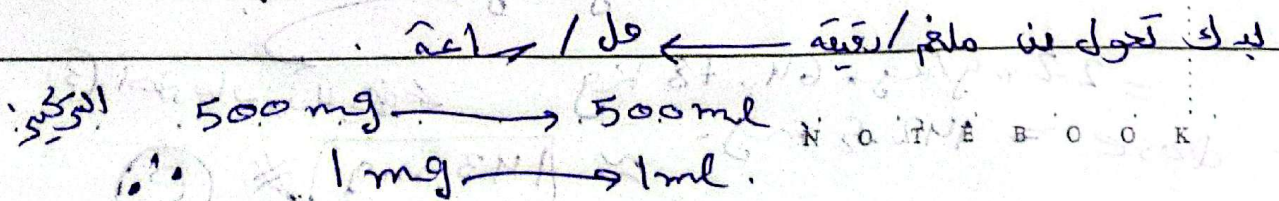 بدك تحول من ملغم/دقيقة ← مل/ساعة.
التركيز: 500 mg → 500 ml
NOTEBOOK
∴ 1 mg → 1 ml.